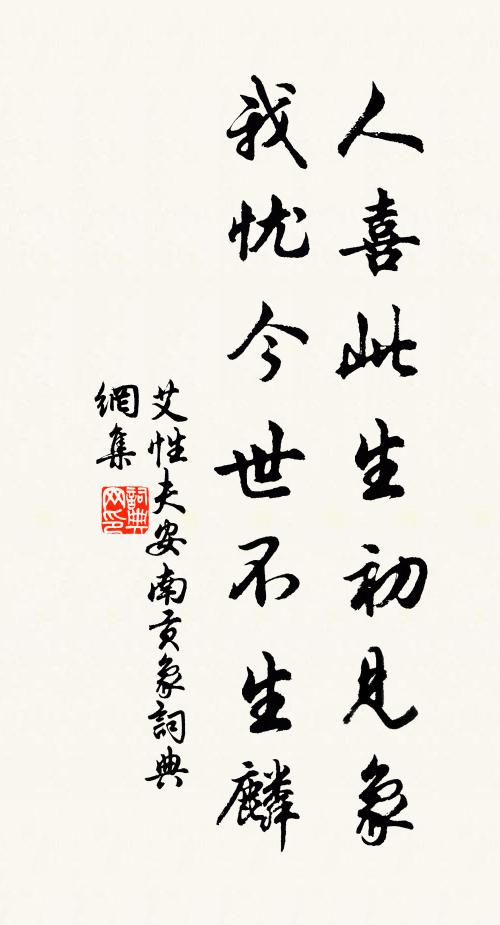 人喜此生初见象
我忧今世不生麟
艾性夫安南贡象詞典
網集
詞典
网印